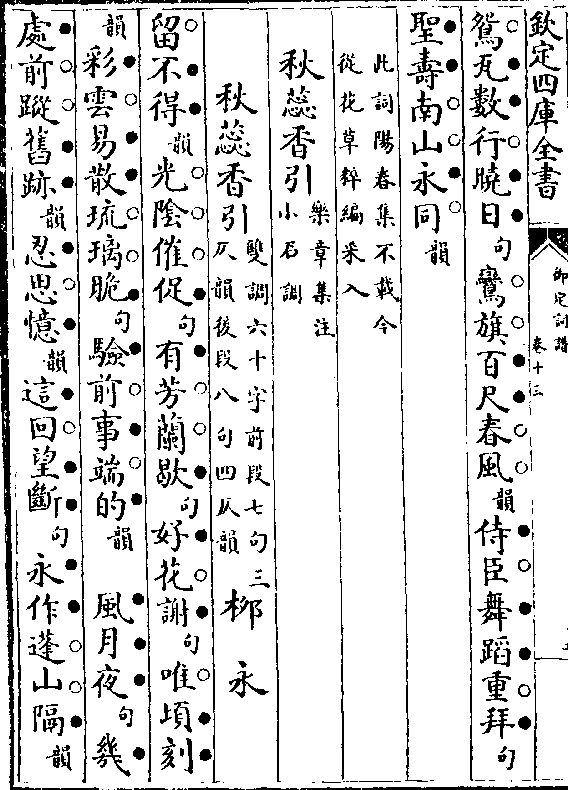 欽定四庫全書
御定詞譜
卷十三
鴛瓦數行曉日句鸞旗百尺春風韻侍臣舞蹈重拜句
聖壽南山永同韻
此詞陽春集不載今
從花草稡編采入
秋蕊香引樂章集注
小石調
秋蕊香引雙調六十字前段七句三
仄韻後段八句四仄韻
柳永
留不得韻光陰催促句有芳蘭歇句好花謝句唯頃刻
韻彩雲易散琉璃脆句驗前事端的韻 風月夜句幾
處前蹤舊跡韻忍思憶韻這回望斷句永作蓬山隔韻